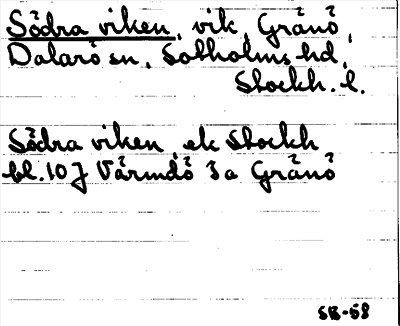 Södra viken, vik, Gränö,
Dalarö sn, Sotholms hd,
Stockh. l.
Södra viken, ek Stockh
bl. 10 J Värmdö 3a Gränö
SB-58